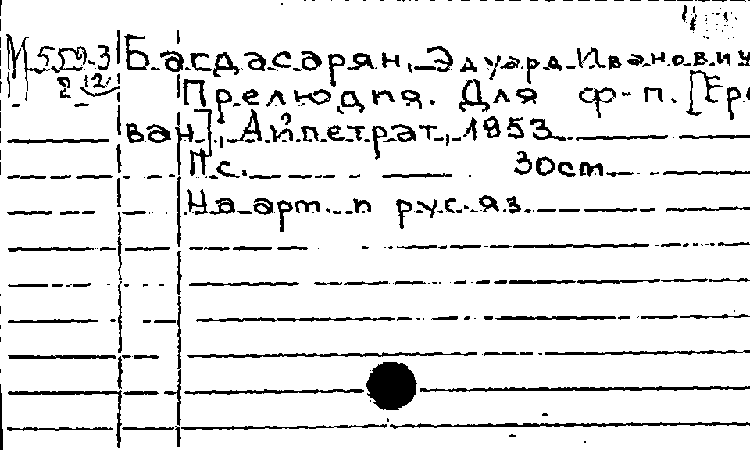 М 559-3 Багдасарян, Эдуард Иванович
2 Прелюдия. Для ф-п. [Ере
ван], Айпетрат, 1953
11 с. 30 cm.
На арт. п рус. яз.